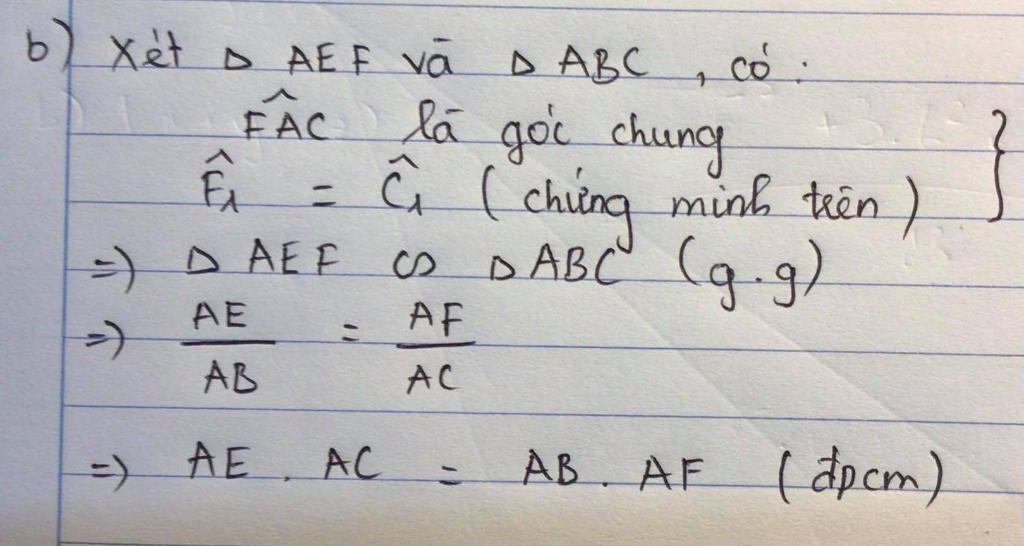 b) Xét Δ AEF và Δ ABC , có :
F̂AC là góc chung
F̂₁ = Ĉ₁ ( chứng minh trên ) }
=> Δ AEF ∽ Δ ABC (g.g)
=> AE/AB = AF/AC
=> AE . AC = AB . AF (đpcm)